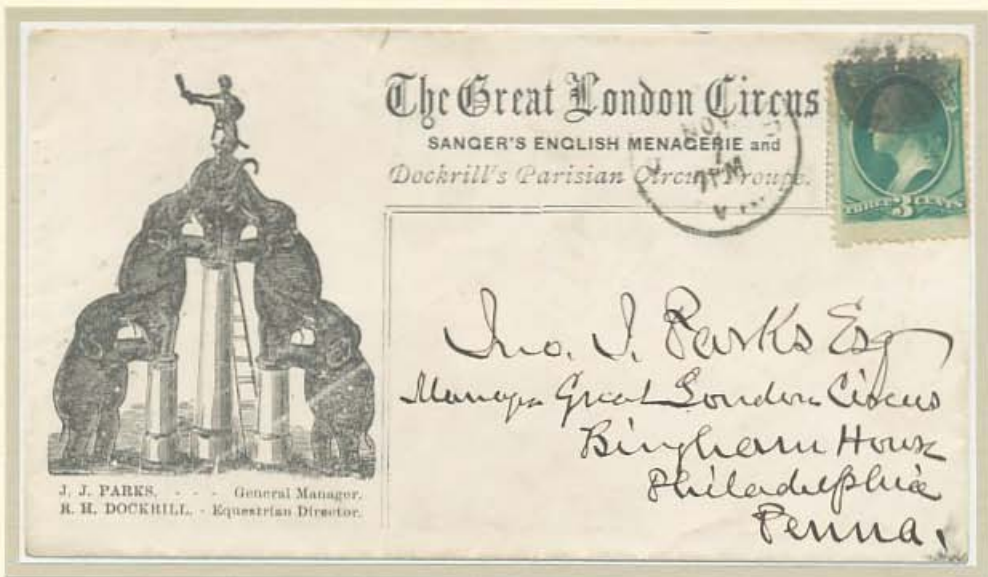 The Great London Circus
SANGER'S ENGLISH MENAGERIE and
Dockrill's Parisian Circus Troupe.
NOV
7
7PM
THREE 3 CENTS
Jno. J. Parks Esq
Manager Great London Circus
Bingham House
Philadelphia
Penna.
J. J. PARKS, - - - General Manager.
R. H. DOCKRILL. - Equestrian Director.